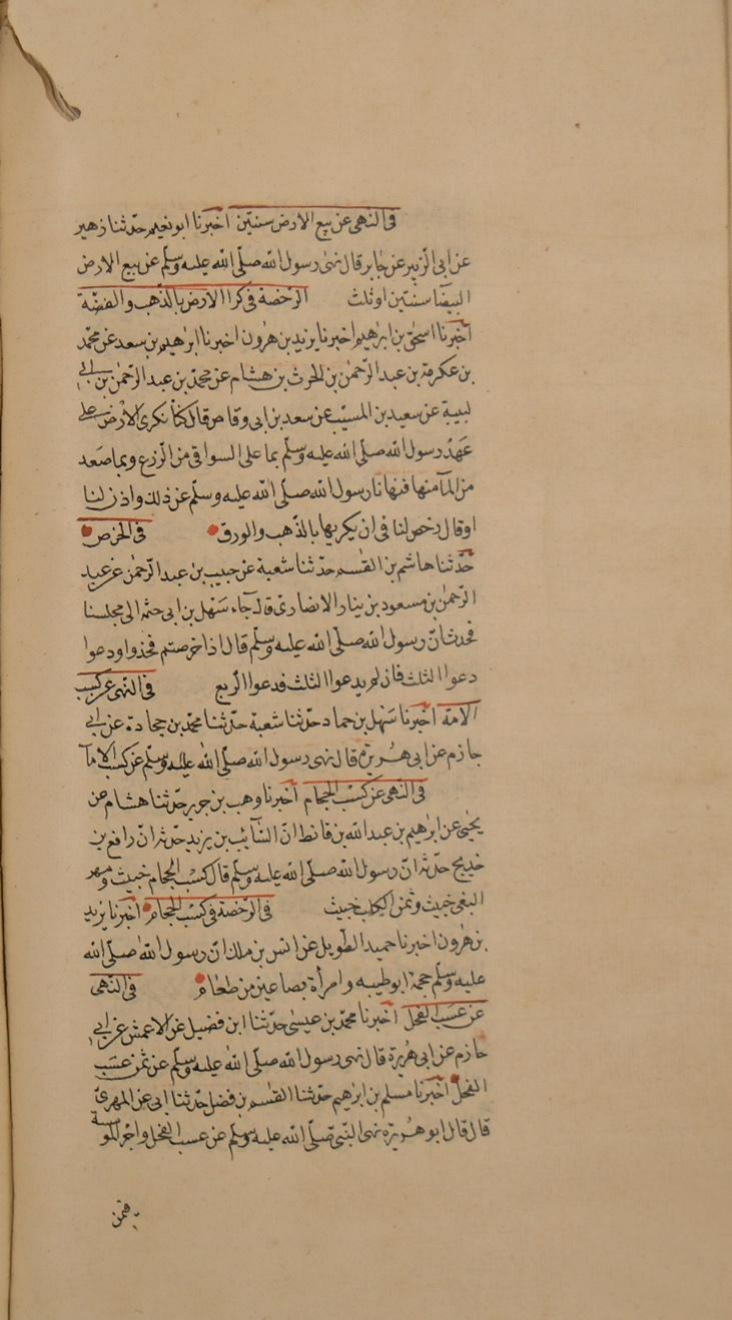 في النهي عن بيع الارض سنتين اخبرنا ابو نعيم حدثنا زهير
عن ابي الزبير عن جابر قال نهى رسول الله صلى الله عليه وسلم عن بيع الارض
البيضا سنتين او ثلث الرخصة في كرا الارض بالذهب والفضة
اخبرنا اسحق بن ابرهيم اخبرنا يزيد بن هرون اخبرنا ابرهيم بن سعد عن محمد
بن عكرمة بن عبد الرحمن بن الحرث بن هشام عن محمد بن عبد الرحمن بن ابي
لبيبة عن سعيد بن المسيب عن سعد بن ابي وقاص قال كنا نكري الارض على
عهد رسول الله صلى الله عليه وسلم بما على السواقي من الزرع وبما صعد
من المآ منها فنهانا رسول الله صلى الله عليه وسلم عن ذلك واذن لنا
او قال رخص لنا في ان نكريها بالذهب والورق في الخرص
حدثنا هاشم بن القسم حدثنا شعبة عن حبيب بن عبد الرحمن عن عبد
الرحمن بن مسعود بن نيار الانصاري قال جاء سهل بن ابي حثمة الى مجلسنا
فحدث ان رسول الله صلى الله عليه وسلم قال اذا خرصتم فخذوا ودعوا
دعوا الثلث فان لم يدعوا الثلث فدعوا الربع في النهي عن كسب
الامة اخبرنا سهل بن حماد حدثنا شعبة حدثنا محمد بن جحادة عن ابي
حازم عن ابي هريرة قال نهى رسول الله صلى الله عليه وسلم عن كسب الاما
في النهي عن كسب الحجام اخبرنا وهب بن جرير حدثنا هشام عن
يحيى عن ابرهيم بن عبد الله بن قانط ان السائب بن يزيد حدثه ان رافع بن
خديج حدثه ان رسول الله صلى الله عليه وسلم قال كسب الحجام خبيث ومهر
البغي خبيث وثمن الكلب خبيث في الرخصة في كسب الحجام اخبرنا يزيد
بن هرون اخبرنا حميد الطويل عن انس بن ملك ان رسول الله صلى الله
عليه وسلم حجمه ابو طيبه وامرأة بصاعين من طعام في النهي
عن عسب الفحل اخبرنا محمد بن عيسى حدثنا ابن فضيل عن الاعمش عن ابي
حازم عن ابي هريرة قال نهى رسول الله صلى الله عليه وسلم عن ثمن عسب
الفحل اخبرنا مسلم بن ابرهيم حدثنا القسم بن فضل حدثنا ابي عن المهري
قال قال ابو هريرة نهى النبي صلى الله عليه وسلم عن عسب الفحل واجر المومسة
فمن